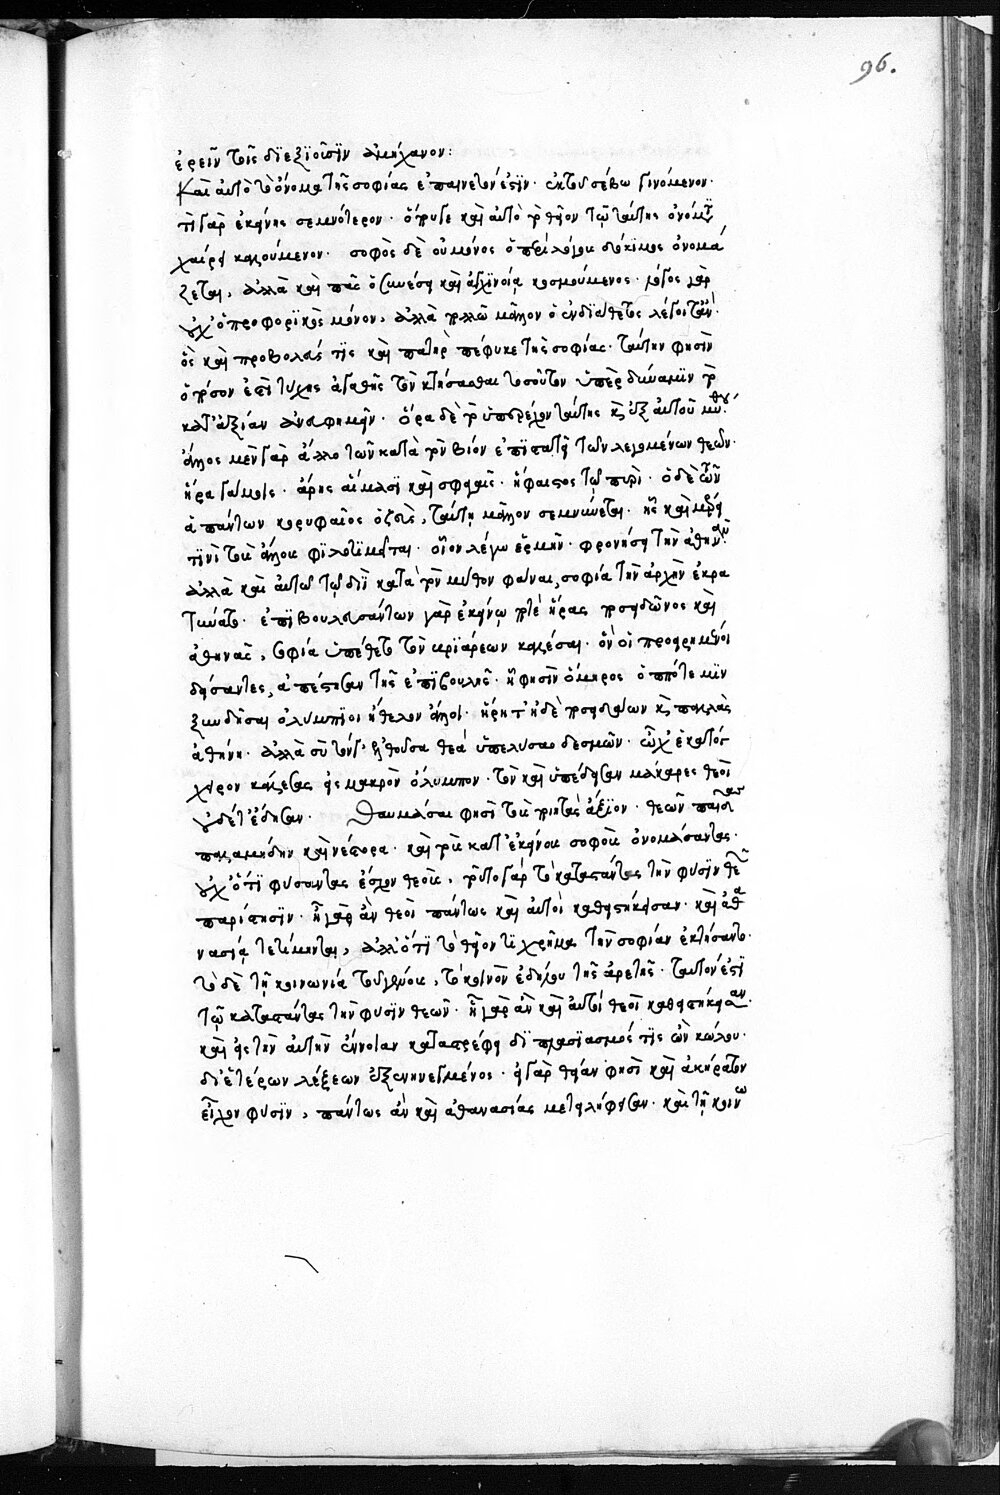 96.
ἐρεῖν τοῖς διεξιοῦσιν ἀμήχανον:
Καὶ αὐτὸ τὸ ὄνομα τῆς σοφίας ἐπαινετόν ἐστιν· ἐκ τοῦ σέβω γινόμενον·
τί γὰρ ἐκείνης σεμνότερον· ὅπου γε καὶ αὐτὸ τὸ θεῖον τῷ ταύτης ὀνόματι
χαίρει καλούμενον· σοφὸς δὲ οὐ μόνος ὁ περὶ λόγου δόκιμος ὀνομά
ζεται, ἀλλὰ καὶ πᾶς ὁ συνέσει καὶ ἀγχινοίᾳ κοσμούμενος· λόγος γὰρ
οὐχ ὁ προφορικὸς μόνον, ἀλλὰ πολλῷ μᾶλλον ὁ ἐνδιάθετος λέγοιτ' ἄν·
ὃς καὶ προβολεύς τις καὶ πατὴρ πέφυκε τῆς σοφίας· ταύτην φησὶν
ὅσον ἐστὶ τύχης ἀγαθῆς τὸν κτήσασθαι τοσοῦτον ὑπὲρ δύναμιν τὸ
κατ' ἀξίαν ἀνευφημεῖν· ὅρα δὲ τὸ ὑπερέχον ταύτης κἀξ αὐτοῦ μύθου·
ἄλλος μὲν γὰρ ἄλλο τῶν κατὰ τὸν βίον ἐπιστατεῖ τῶν λεγομένων θεῶν·
ἥρα γάμοις· ἄρης αἵμασι καὶ σφαγαῖς· ἥφαιστος τῷ πυρί· ὁ δὲ τῶν
ἁπάντων κορυφαῖος ὁ ζεὺς, ταύτῃ μᾶλλον σεμνύνεται· ἧς καὶ
τισὶ τοὺς ἄλλους φιλοτιμεῖται· οἷον λέγω ἑρμῆν· φρονήσει τὴν ἀθηνᾶν·
ἀλλὰ καὶ αὐτῷ τῷ διῒ κατὰ τὸν μῦθον φάναι, σοφία τὴν ἀρχὴν ἐκρα
τύνατο· ἐπιβουλευσάντων γὰρ ἐκείνῳ ποτὲ ἥρας ποσειδῶνος καὶ
ἀθηνᾶς, σοφία ὑπέθετο τὸν βριάρεων καλέσαι· ὃν οἱ προειρημένοι
δείσαντες, ἀπέστησαν τῆς ἐπιβουλῆς· ᾗ φησὶν ὅμηρος ὁππότε μιν
ξυνδῆσαι ὀλύμπιοι ἤθελον ἄλλοι· ἥρη τ' ἠδὲ ποσειδάων καὶ παλλὰς
ἀθήνη· ἀλλὰ σὺ τόνγ' ἐλθοῦσα θεά ὑπελύσαο δεσμῶν· ὦχ' ἑκατόγ
χειρον καλέσασ' ἐς μακρὸν ὄλυμπον· τὸν καὶ ὑπέδεισαν μάκαρες θεοὶ
οὐδέ τ' ἔδησαν· Θαυμάσαι φησὶ τοὺς ποιητὰς ἄξιον· θεῶν παῖδας
παλαμήδην καὶ νέστορα· καὶ τοὺς κατ' ἐκείνους σοφοὺς ὀνομάσαντας·
οὐχ ὅτι φύσαντας ἔσχον θεούς, τοῦτο γὰρ τὸ καταστάντας τὴν φύσιν θεῶν
παρίστησιν· ἦ γὰρ ἂν θεοὶ πάντως καὶ αὐτοὶ καθειστήκεσαν· καὶ ἀθα
νασίᾳ τετίμηνται, ἀλλ' ὅτι τὸ θεῖόν τι χρῆμα τὴν σοφίαν ἐκτήσαντο·
τὸ δὲ τῇ κοινωνίᾳ τοῦ γένους, τὸ κοινὸν ἐδήλου τῆς ἀρετῆς· ταὐτόν ἐστι
τῷ καταστάντας τὴν φύσιν θεῶν· ἦ γὰρ ἂν καὶ αὐτοὶ θεοὶ καθειστήκεσαν·
καὶ εἰς τὴν αὐτὴν ἔννοιαν καταστρέφει διπλασιασμός τις ὢν κώλου·
δι' ἑτέρων λέξεων ἐξενηνεγμένος· εἰ γὰρ θείαν φησὶ καὶ ἀκήρατον
εἶχον φύσιν, πάντως ἂν καὶ ἀθανασίας μετειλήφεσαν· καὶ τῇ κοινω